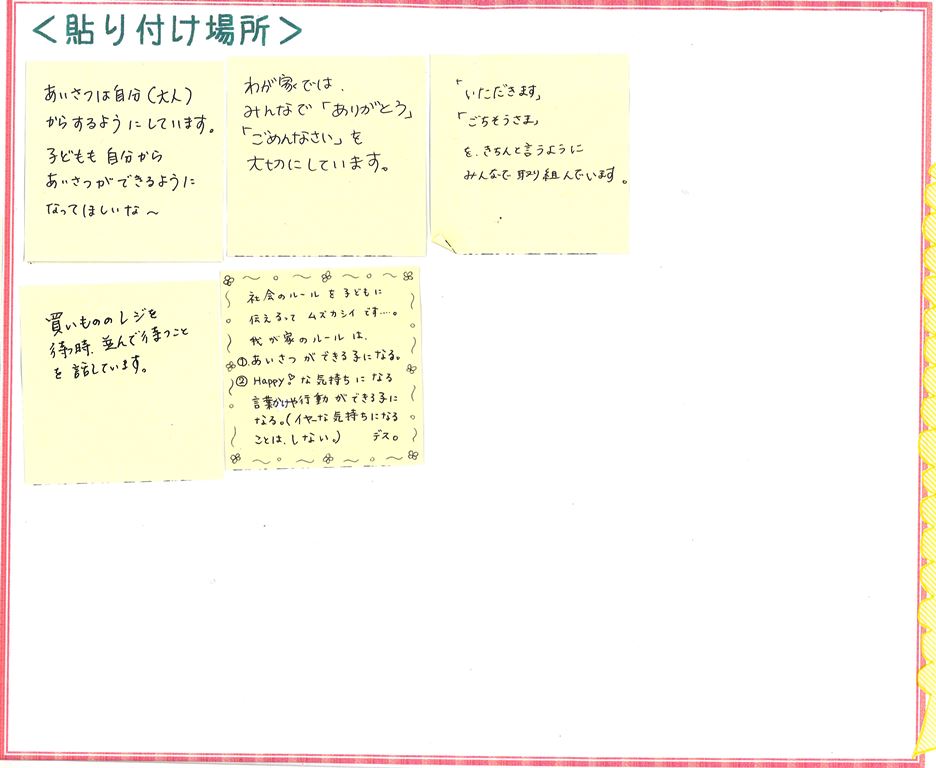 ＜貼り付け場所＞
あいさつは自分（大人）
からするようにしています。
子どもも自分から
あいさつができるように
なってほしいな～
わが家では、
みんなで「ありがとう」
「ごめんなさい」を
大切にしています。
「いただきます」
「ごちそうさま」
を、きちんと言うように
みんなで取り組んでいます。
買いもののレジを
待つ時、並んで待つこと
を話しています。
社会のルールを子どもに
伝えるってムズカシイです…。
我が家のルールは、
①.あいさつができる子になる。
②Happy♡な気持ちになる
言葉かけや行動ができる子に
なる。（イヤーな気持ちになる
ことは、しない。）　デス。